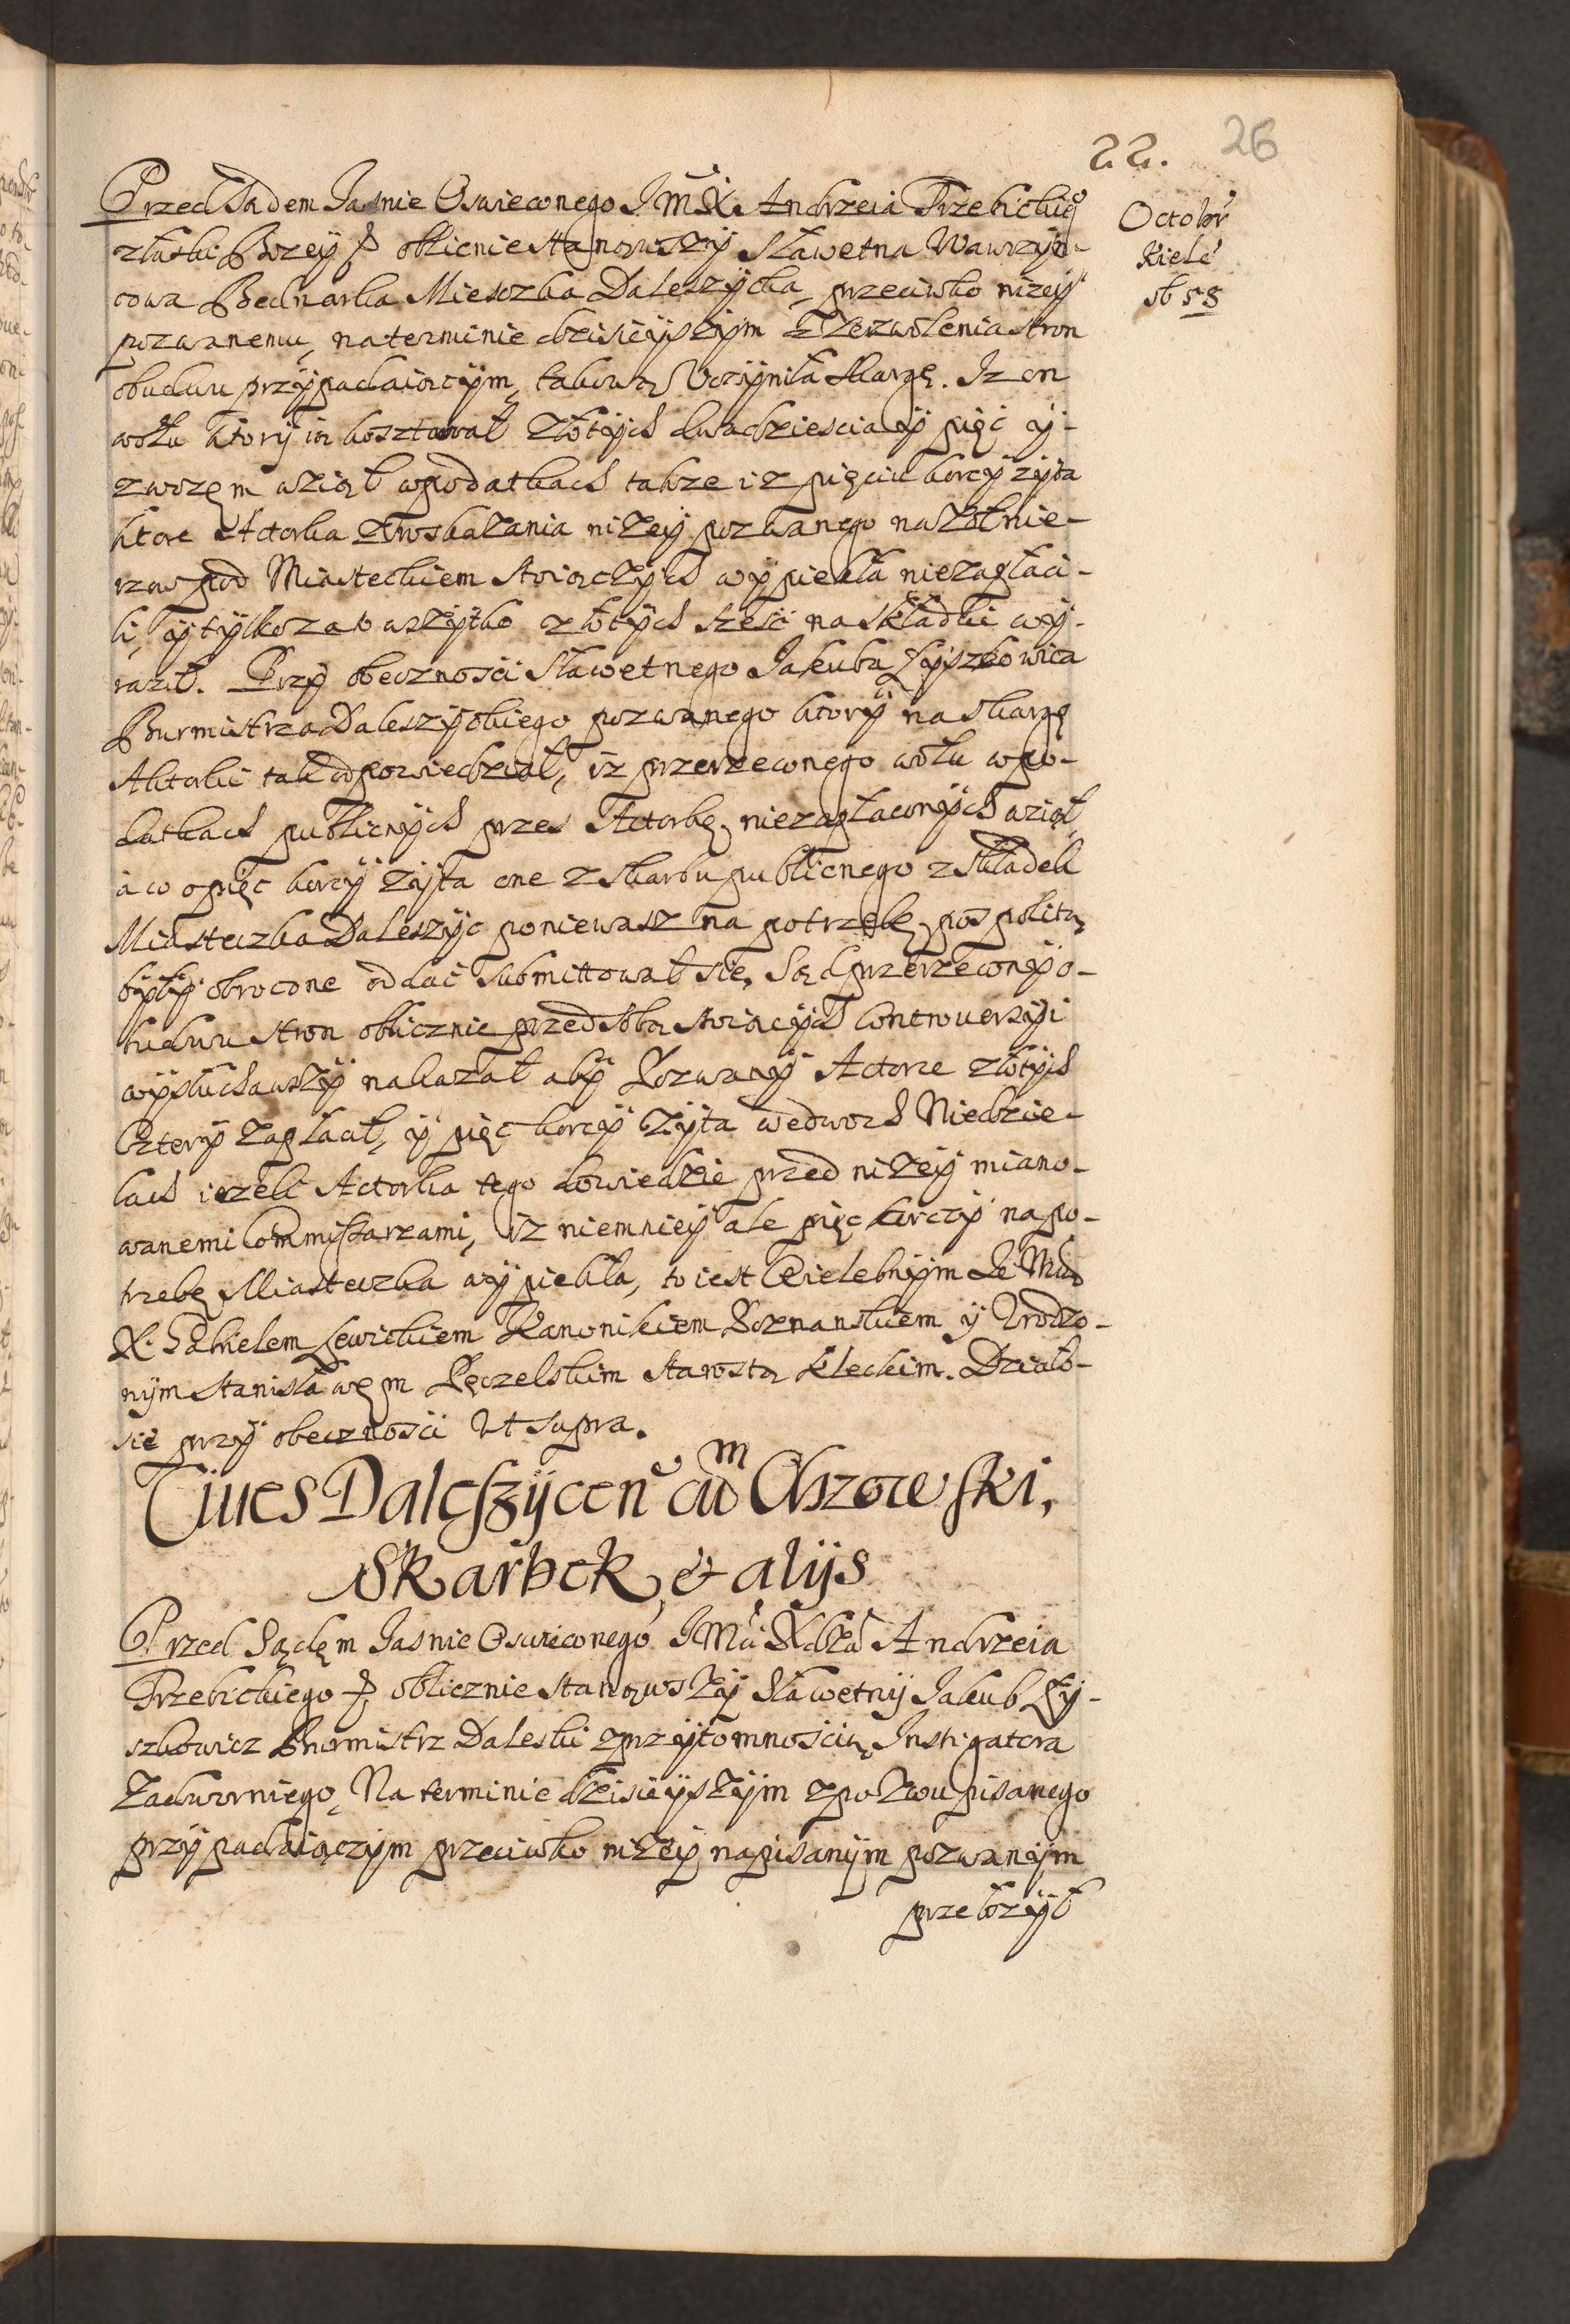 22.
26
Octobr
Kiele
st 58
Przed Sądem Jasnie Oswieconego J. M. X. Andrzeia Trzebickieg
złaski Bozey P oblicnie stanąwszÿ Sławetna Wawrzyn-
cowa Bednarka Miesczka Daleszÿcka, przeciwko nizeÿ
pozwanemu, na terminie dzisieÿszÿm z Zezwolenia stron
obudwu przÿpadaiącÿm, takową Vczÿniła skargę. Iz on
wołu ktorÿ ią kosztował złotÿch dwadziescia ÿ pięć ÿ
z wozęm wziął w podatkach takze i z pięciu korcÿ zÿta
ktore Actorka z roskazania nizeÿ pozwanego na zołnie-
rzow pod Miasteckiem stoiączÿch wÿpiekła niezapłaci-
ł, ÿ tÿlko za to wszÿtko złotÿch szesć na składki wÿ-
raził. Przÿ obecznosci Sławetnego Jakuba Łÿszkowica
Burmistrza Daleszÿckiego pozwanego ktorÿ na skargę
Aktorki tak odpowiedział, iz przerzeconego wołu w po-
datkach publicnÿch przes Actorkę niezapłaconÿch wziął
à co o pięć korcÿ zÿta one z skarbu publicnego z składek
Miasteczka Daleszÿc poniewasz na potrzebę pospolitą
bÿłÿ obrocone oddać submittował się. Sąd przerzeconÿ o-
budwu stron oblicznie przed sobą stoiącÿch controuersÿi
wÿsłuchawszÿ nakazał abÿ Pozwanÿ Actorce złotÿch
Czterÿ zapłacił, ÿ pięć korcÿ zÿta we dwoch Niedzie-
lach iezeli Actorka tego dowiedzie przed nizeÿ miano-
wanemi Commissarzami, iz niemnieÿ ale pięć korcÿ na po-
trzebę Miasteczka wÿpiekła, to iest Wielebnÿm Je Mcią
X. Gabrielem Lewickiem Kanonikiem Poznanskiem ÿ Vrodzo-
nÿm Stanisławęm Pęczelskim Starostą Kleckim. Działo-
się przÿ obecznosci Vt supra.
Ciues Daleszÿcen cum Chszowski,
Skarbek, et alijs
Przed Sądęm Jasnie Oswieconego J Mci Xdza Andrzeia
Trzebickiego P oblicznie stanąwszÿ Sławetnÿ Jakub Łÿ-
szkowicz Burmistrz Daleski z przÿtomnoscią Instigatora
Zadwornego, Na terminie dzisieÿszÿm z pozwu pisanego
przÿpadaiączÿm przeciwko nizeÿ napisanÿm pozwanÿm
przełozÿł